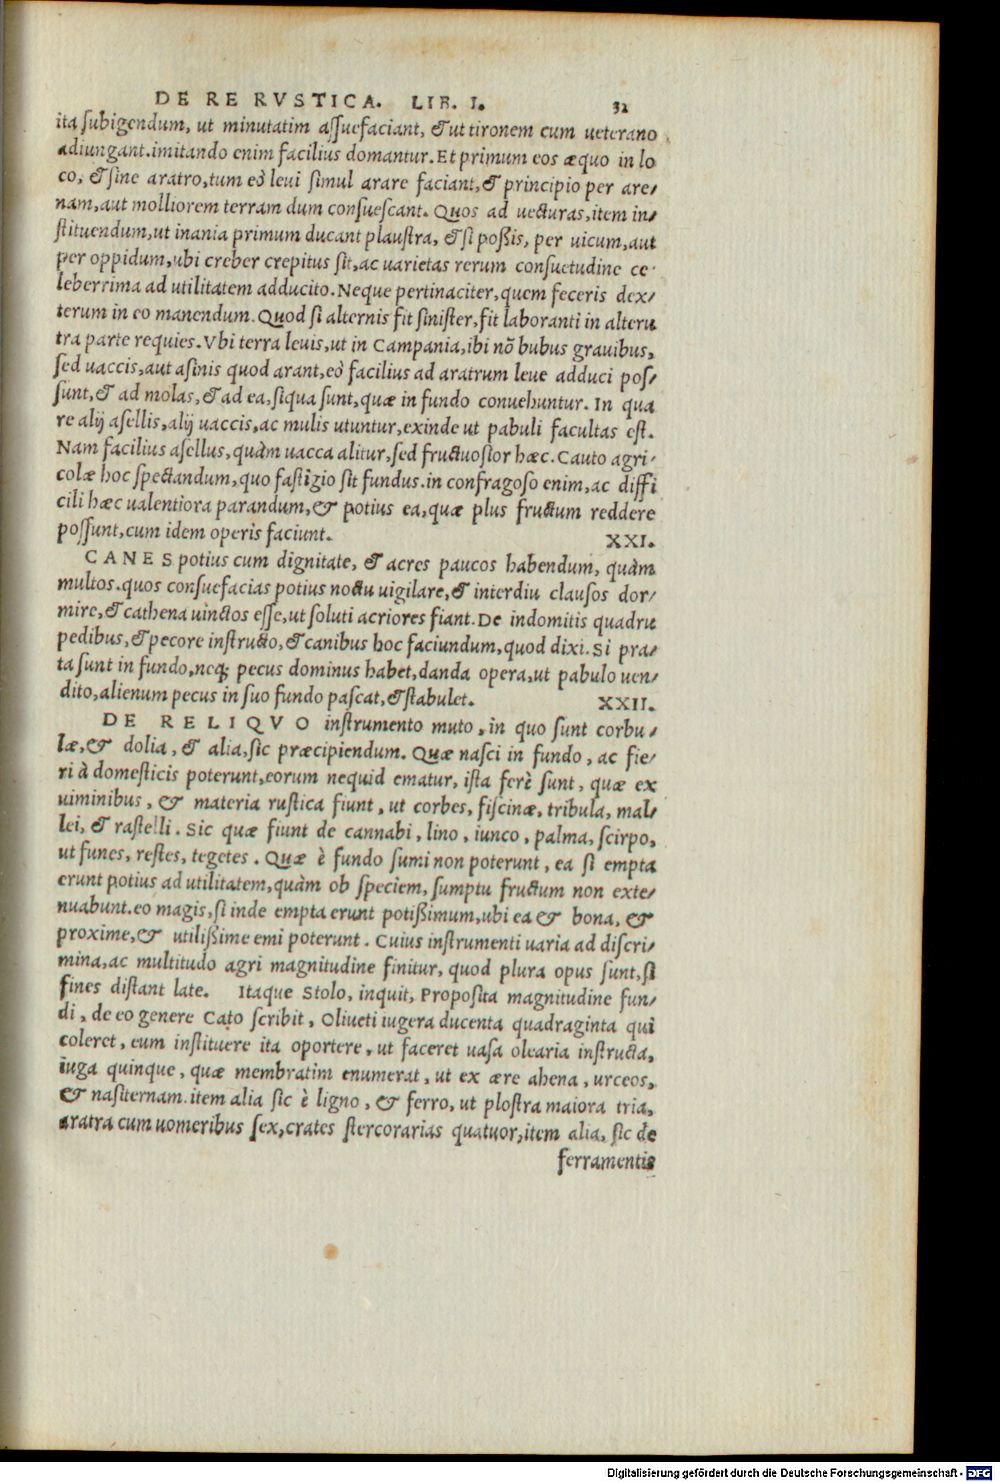 DE RE RVSTICA. LIB. I. 32
ita ſubigendum, ut minutatim aſſuefaciant, & ut tironem cum ueterano
adiungant. imitando enim facilius domantur. Et primum eos æquo in lo
co, & ſine aratro, tum eò leui ſimul arare faciant, & principio per are-
nam, aut molliorem terram dum conſueſcant. Quos ad uecturas, item in-
ſtituendum, ut inania primum ducant plauſtra, & ſi poßis, per uicum, aut
per oppidum, ubi creber crepitus ſit, ac uarietas rerum conſuetudine ce-
leberrima ad utilitatem adducito. Neque pertinaciter, quem feceris dex-
terum in eo manendum. Quod ſi alternis fit ſiniſter, fit laboranti in alteru
tra parte requies. Vbi terra leuis, ut in Campania, ibi nõ bubus grauibus,
ſed uaccis, aut aſinis quod arant, eò facilius ad aratrum leue adduci poſ-
ſunt, & ad molas, & ad ea, ſiqua ſunt, quæ in fundo conuehuntur. In qua
re alij aſellis, alij uaccis, ac mulis utuntur, exinde ut pabuli facultas eſt.
Nam facilius aſellus, quàm uacca alitur, ſed fructuoſior hæc. Cauto agri-
colæ hoc ſpectandum, quo faſtigio ſit fundus. in confragoſo enim, ac diffi
cili hæc ualentiora parandum, & potius ea, quæ plus fructum reddere
poſſunt, cum idem operis faciunt. XXI.
CANES potius cum dignitate, & acres paucos habendum, quàm
multos. quos conſuefacias potius noctu uigilare, & interdiu clauſos dor-
mire, & cathena uinctos eſſe, ut ſoluti acriores fiant. De indomitis quadru
pedibus, & pecore inſtructo, & canibus hoc faciundum, quod dixi. Si pra-
ta ſunt in fundo, neq; pecus dominus habet, danda opera, ut pabulo uen-
dito, alienum pecus in ſuo fundo paſcat, & ſtabulet. XXII.
DE RELIQVO inſtrumento muto, in quo ſunt corbu-
læ, & dolia, & alia, ſic præcipiendum. Quæ naſci in fundo, ac fie-
ri à domeſticis poterunt, eorum nequid ematur, iſta ferè ſunt, quæ ex
uiminibus, & materia ruſtica fiunt, ut corbes, fiſcinæ, tribula, mal-
lei, & raſtelli. Sic quæ fiunt de cannabi, lino, iunco, palma, ſcirpo,
ut funes, reſtes, tegetes. Quæ è fundo ſumi non poterunt, ea ſi empta
erunt potius ad utilitatem, quàm ob ſpeciem, ſumptu fructum non exte-
nuabunt. eo magis, ſi inde empta erunt potißimum, ubi ea & bona, &
proxime, & utilißime emi poterunt. Cuius inſtrumenti uaria ad diſcri-
mina, ac multitudo agri magnitudine finitur, quod plura opus ſunt, ſi
fines diſtant late. Itaque Stolo, inquit, Propoſita magnitudine fun-
di, de eo genere Cato ſcribit, Oliueti iugera ducenta quadraginta qui
coleret, eum inſtituere ita oportere, ut faceret uaſa olearia inſtructa,
iuga quinque, quæ membratim enumerat, ut ex ære ahena, urceos,
& naſiternam. item alia ſic è ligno, & ferro, ut ploſtra maiora tria,
aratra cum uomeribus ſex, crates ſtercorarias quatuor, item alia, ſic de
ferramentis
Digitalisierung gefördert durch die Deutsche Forschungsgemeinschaft - DFG